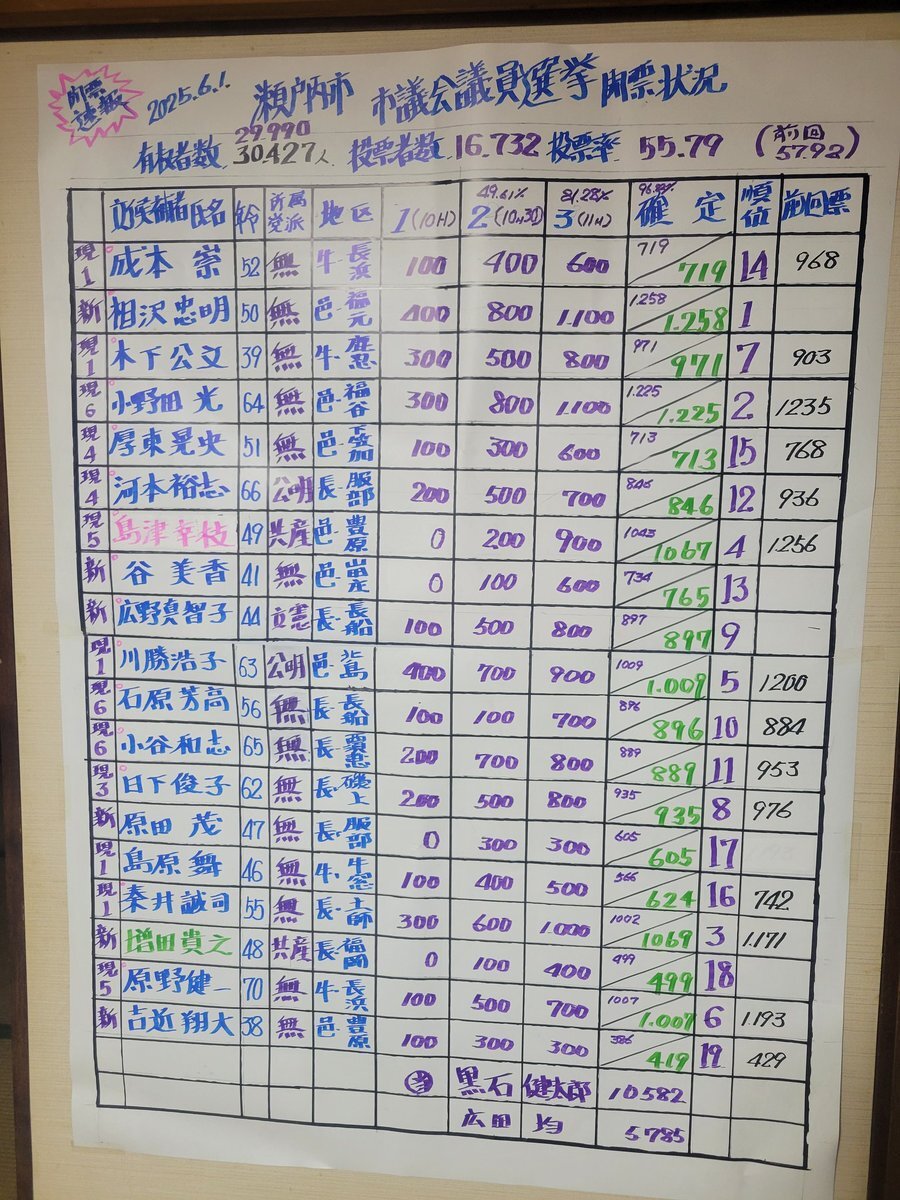 開票速報 2025.6.1. 瀬戸内市 市議会議員選挙 開票状況
29990
有权者数 30427人 投票者数 16.732 投票率 55.79 (前回 57.92)
立候補者氏名 年令 所属党派 地区 1(10H) 49.61% 2(10H30) 81.28% 3(11H) 確定 順位 前回票
現1 成本 崇 52 無 牛・長浜 100 400 600 719 719 14 968
新 相沢忠明 50 無 邑・福元 400 800 1.100 1.258 1.258 1
現1 木下公文 39 無 牛・鹿忍 300 500 800 971 971 7 903
現6 小野田 光 64 無 邑・福谷 300 800 1.100 1.225 1.225 2 1235
現4 厚東晃央 51 無 邑・下笠加 100 300 600 713 713 15 768
現4 河本裕志 66 公明 長・服部 200 500 700 846 846 12 936
現5 島津幸枝 49 共産 邑・豊原 0 200 900 1043 1067 4 1256
新 谷 美香 41 無 邑・山田庄 0 100 600 734 765 13
新 広野真智子 44 立憲 長・長船 100 500 800 897 897 9
現1 川勝浩子 63 公明 邑・北島 400 700 900 1009 1.009 5 1200
現6 石原芳高 56 無 長・長船 100 100 700 896 896 10 884
現6 小谷和志 65 無 長・ 200 700 800 889 889 11 953
現3 日下俊子 62 無 長・磯上 200 500 800 935 935 8 976
新 原田 茂 47 無 長・服部 0 300 300 605 605 17
現1 島原 舞 46 無 牛・牛窓 100 400 500 566 624 16 742
現1 秦井誠司 55 無 長・土師 300 600 1.000 1002 1069 3 1.171
新 増田貴之 48 共産 長・福岡 0 100 400 499 499 18
現5 原野健一 70 無 牛・長浜 100 500 700 1007 1.007 6 1.193
新 吉近翔大 38 無 邑・豊原 100 300 300 386 419 19 429
当 黒石 健太郎 10582
広田 均 5785